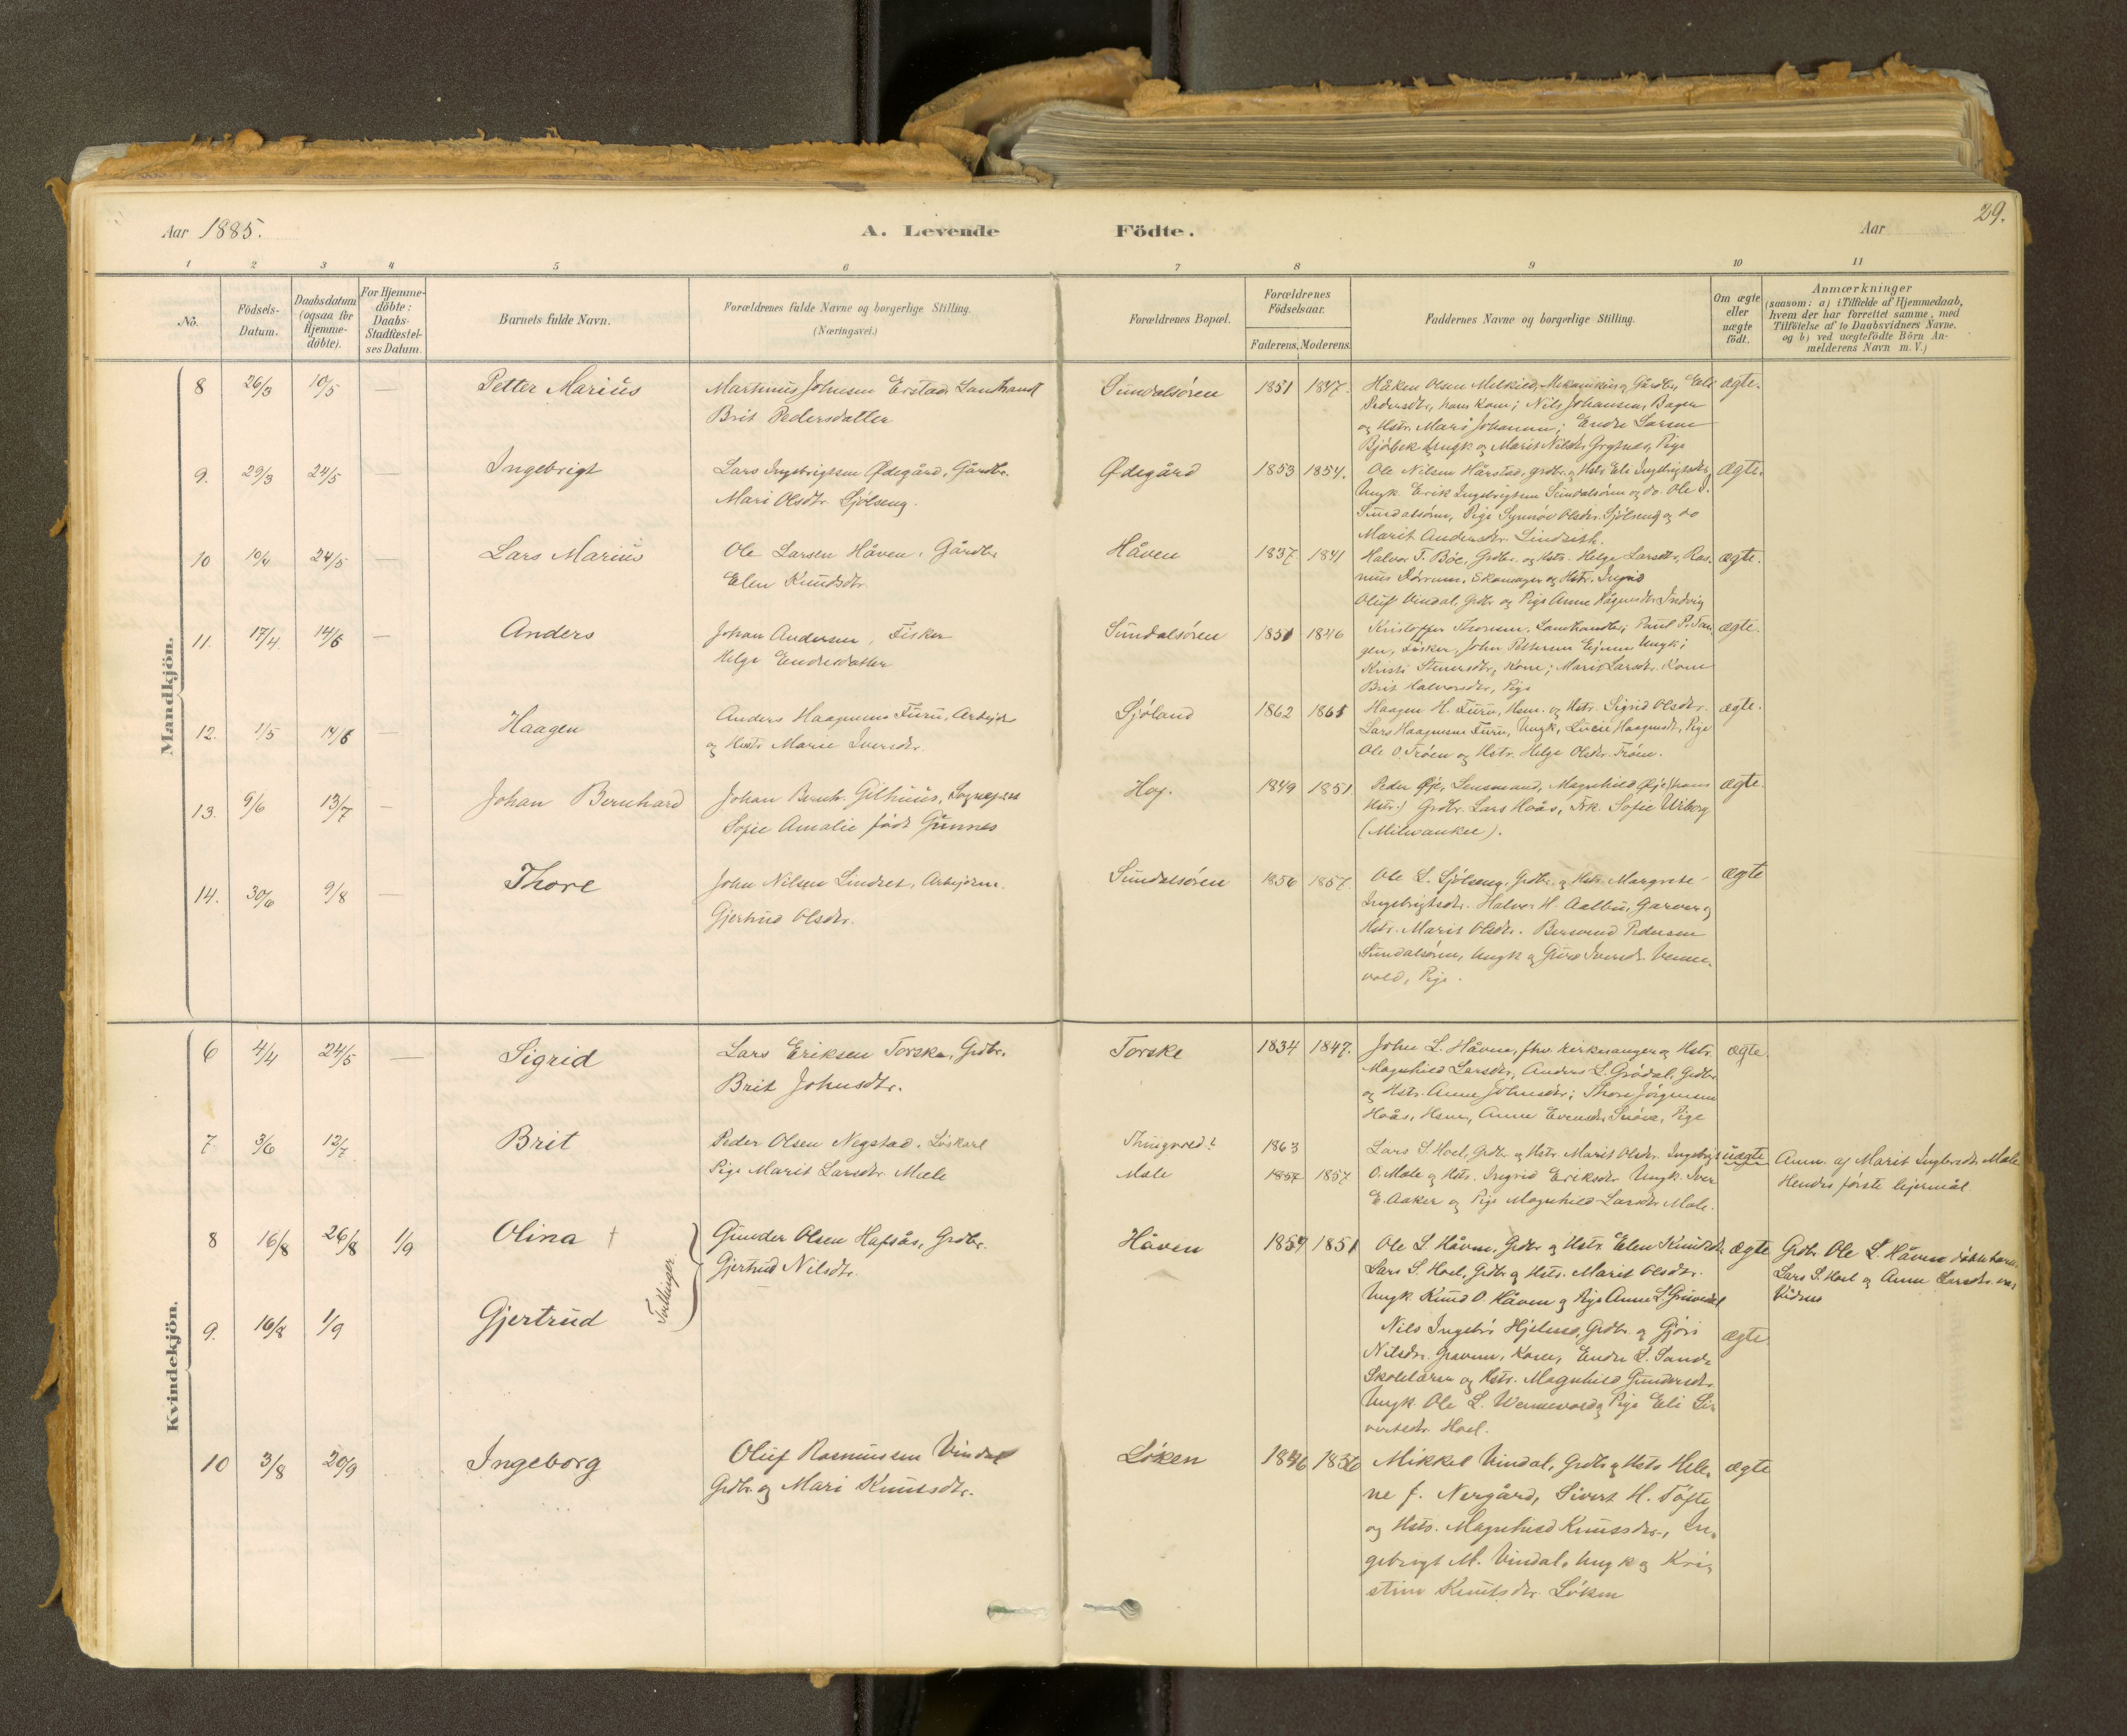 29.
Aar 1885.
A. Levende Födte.
Aar
1 2 3 4 5 6 7 8 9 10 11
No.
Födsels-Datum.
Daabsdatum (ogsaa for Hjemme-döbte).
For Hjemme-döbte: Daabs-Stadfæstel-ses Datum.
Barnets fulde Navn.
Forældrenes fulde Navne og borgerlige Stilling.
(Næringsvei.)
Forældrenes Bopæl.
Forældrenes Födselsaar.
Faderens. Moderens.
Faddernes Navne og borgerlige Stilling.
Om ægte eller uægte födt.
Anmærkninger
(saasom: a) i Tilfælde af Hjemmedaab,
hvem der har forrettet samme, med
Tilföielse af to Daabsvidners Navne.
og b) ved uægtefödte Börn An-
melderens Navn m. V.)
Mandkjön.
8 26/3 10/5 — Petter Marius Martinus Johnsen Erstad Landhandl Sundalsören 1851 1847. Håken Olsen Melkild, Mekanikus og Gårdbr, Eli ægte.
Brit Pedersdatter Pedersdtr, hans Kone; Nils Johansen, Bager
og Hstr. Mari Johanna; Endre Larsen
Bjørbek Ungk. og Marit Nilsdtr. Grytnes, Pige
9. 29/3 24/5 — Ingebrigt Lars Ingebrigtsen Ødegård, Gårdbr. Ødegård 1853 1854. Ole Nilsen Hårstad, grdbr. og Hstr. Eli Ingebrigtsdtr, ægte.
Mari Olsdtr Sjölseng. Ungk. Erik Ingebrigtsen Sundalsören og do. Ole I.
Sundalsören, Pige Synnöv Olsdtr. Sjölseng og do
Marit Andersdtr. Lindseth.
10 10/4 24/5 — Lars Marius Ole Larsen Håven, Gårdbr Håven 1837 1841 Halvor T. Böe, Grdbr. og Hstr. Helge Larsdtr, Ras- ægte.
Elen Knudsdtr. mus Dörrum, Skomager og Hstr. Ingrid
Oluf Vindal, Grdbr og Pige Anne Hågensdtr. Indvig
11. 17/4 14/6 — Anders Johan Andersen, Fisker Sundalsören 1851 1846 Kristoffer Thoresen, Landhandler; Paul P. Tan- ægte.
Helge Endresdatter gen, Fisker, John Pettersen Ungk;
Kristi Stenersdtr, Kone; Marit Larsdtr. Kone
Brit Halvorsdtr, Pige
12. 1/5 14/6 — Haagen Anders Haagensen Furu, Arbejder Sjöland 1862 1865 Haagen H. Furu, Hsm. og Hstr. Sigrid Olsdtr. ægte.
og Hustr Marie Iversdtr. Lars Haagensen Furu, Ungk, Lucie Haagensdtr, Pige
Ole O. Tröen og Hstr. Helge Olsdtr. Tröen.
13. 9/6 13/7 — Johan Bernhard Johan Bernh. Gilhuus, Sognepræst Hog. 1849 1851 Peder Øije, Lensmand, Magnhild Øije (hans ægte.
Sofie Amalie född Gunnes Hstr.) Grdbr. Lars Hoås, Frk. Sofie Wiborg
(Milwaukee).
14. 30/6 9/8 — Thore John Nilsen Lindset, Arbejdsm. Sundalsören 1856 1857. Ole L. Sjölseng, Grdbr. og Hstr. Margrete ægte
Gjertrud Olsdtr. Ingebrigtsdtr. Halvor H. Aalbu, Garver og
Hstr. Marit Olsdtr. Bersvend Pedersen
Sundalsören, Ungk og Guro Iversdtr Venne-
vold, Pige.
Kvindekjön.
6 4/4 24/5 — Sigrid Lars Eriksen Torske, Grdbr. Torske 1834 1847. John L. Håven, fhv. Kirkesanger og Hstr. ægte.
Brit Johnsdtr. Magnhild Larsdtr, Anders L. Grödal, Grdbr
og Hstr. Anne Johnsdtr; Thore Jörgensen
Hoås, Hsm, Anne Evensdtr. Pige
7. 3/6 13/7 Brit Peder Olsen Negstad, Löskarl 1863 Lars S. Hoel, Grdbr. og Hstr. Marit Olsdtr. Ingebrigt uægte Anm. af Marit Male
Pige Marit Larsdtr. Mæle Male 1857 1857. O. Male og Hstr. Ingrid Eriksdtr. Ungk. Iver Hendes förste lejermål
E. Aaker og Pige Magnhild Larsdtr Male.
8 16/8 26/8 1/9 Olina † Gunder Olsen Hafsås, Grdbr. Håven 1854 1851 Ole L. Håven, Grdbr og Hstr. Elen Knudsdtr. ægte Grdbr. Ole L. Håven döbte barnet
Gjertrud Nilsdtr. Lars S. Hoel, Grdbr og Hstr. Marit Olsdtr. Lars S. Hoel og Anne Larsdtr. var
Ungk. Knud O. Håven og Pige Anne L. Grönedal Vidner
Tvillinger.
9. 16/8 1/9 Gjertrud Nils Ingebr. Hjelmo, Grdbr. og Gjöri ægte.
Nilsdtr. Gravem, Kone, Endre L. Sande
Skolelærer og Hstr. Magnhild Gundersdtr.
Ungk. Ole L. Wennevold og Pige Eli Si-
vertsdtr. Hoel.
10 3/8 20/9 Ingeborg Oluf Rasmussen Vindal Löken 1846 1856 Mikkel Vindal, Grdbr. og Hstr Hele- ægte
Grdbr. og Mari Knutsdtr. ne f. Nergård, Sivert H. Töfte
og Hstr. Magnhild Knutsdtr., In-
gebrigt M. Vindal, Ungk og Kri-
stine Knutsdtr. Löken